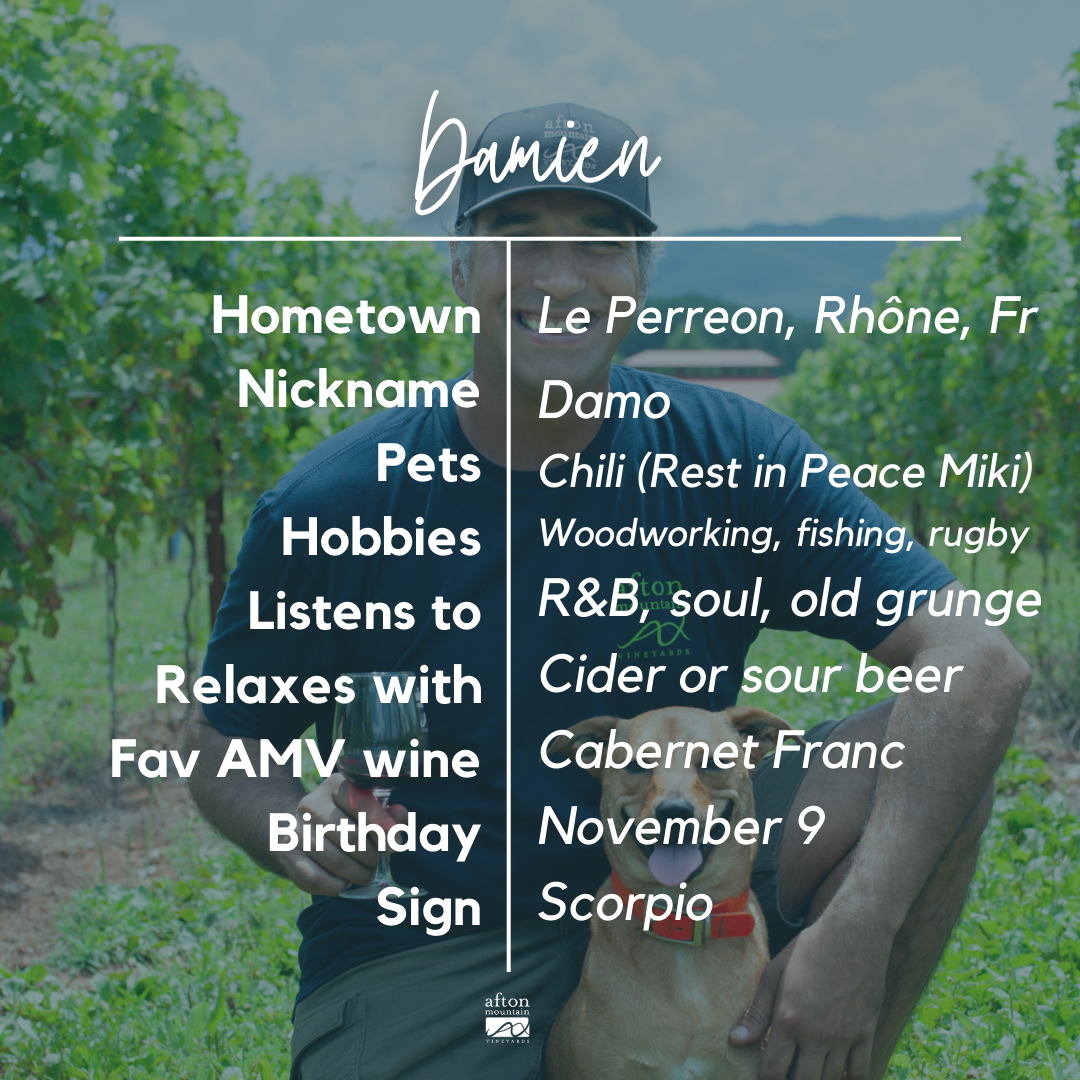 Damien
Hometown Le Perreon, Rhône, Fr
Nickname Damo
Pets Chili (Rest in Peace Miki)
Hobbies Woodworking, fishing, rugby
Listens to R&B, soul, old grunge
Relaxes with Cider or sour beer
Fav AMV wine Cabernet Franc
Birthday November 9
Sign Scorpio
afton
mountain
VINEYARDS
afton
mountain
VINEYARDS
afton
mountain